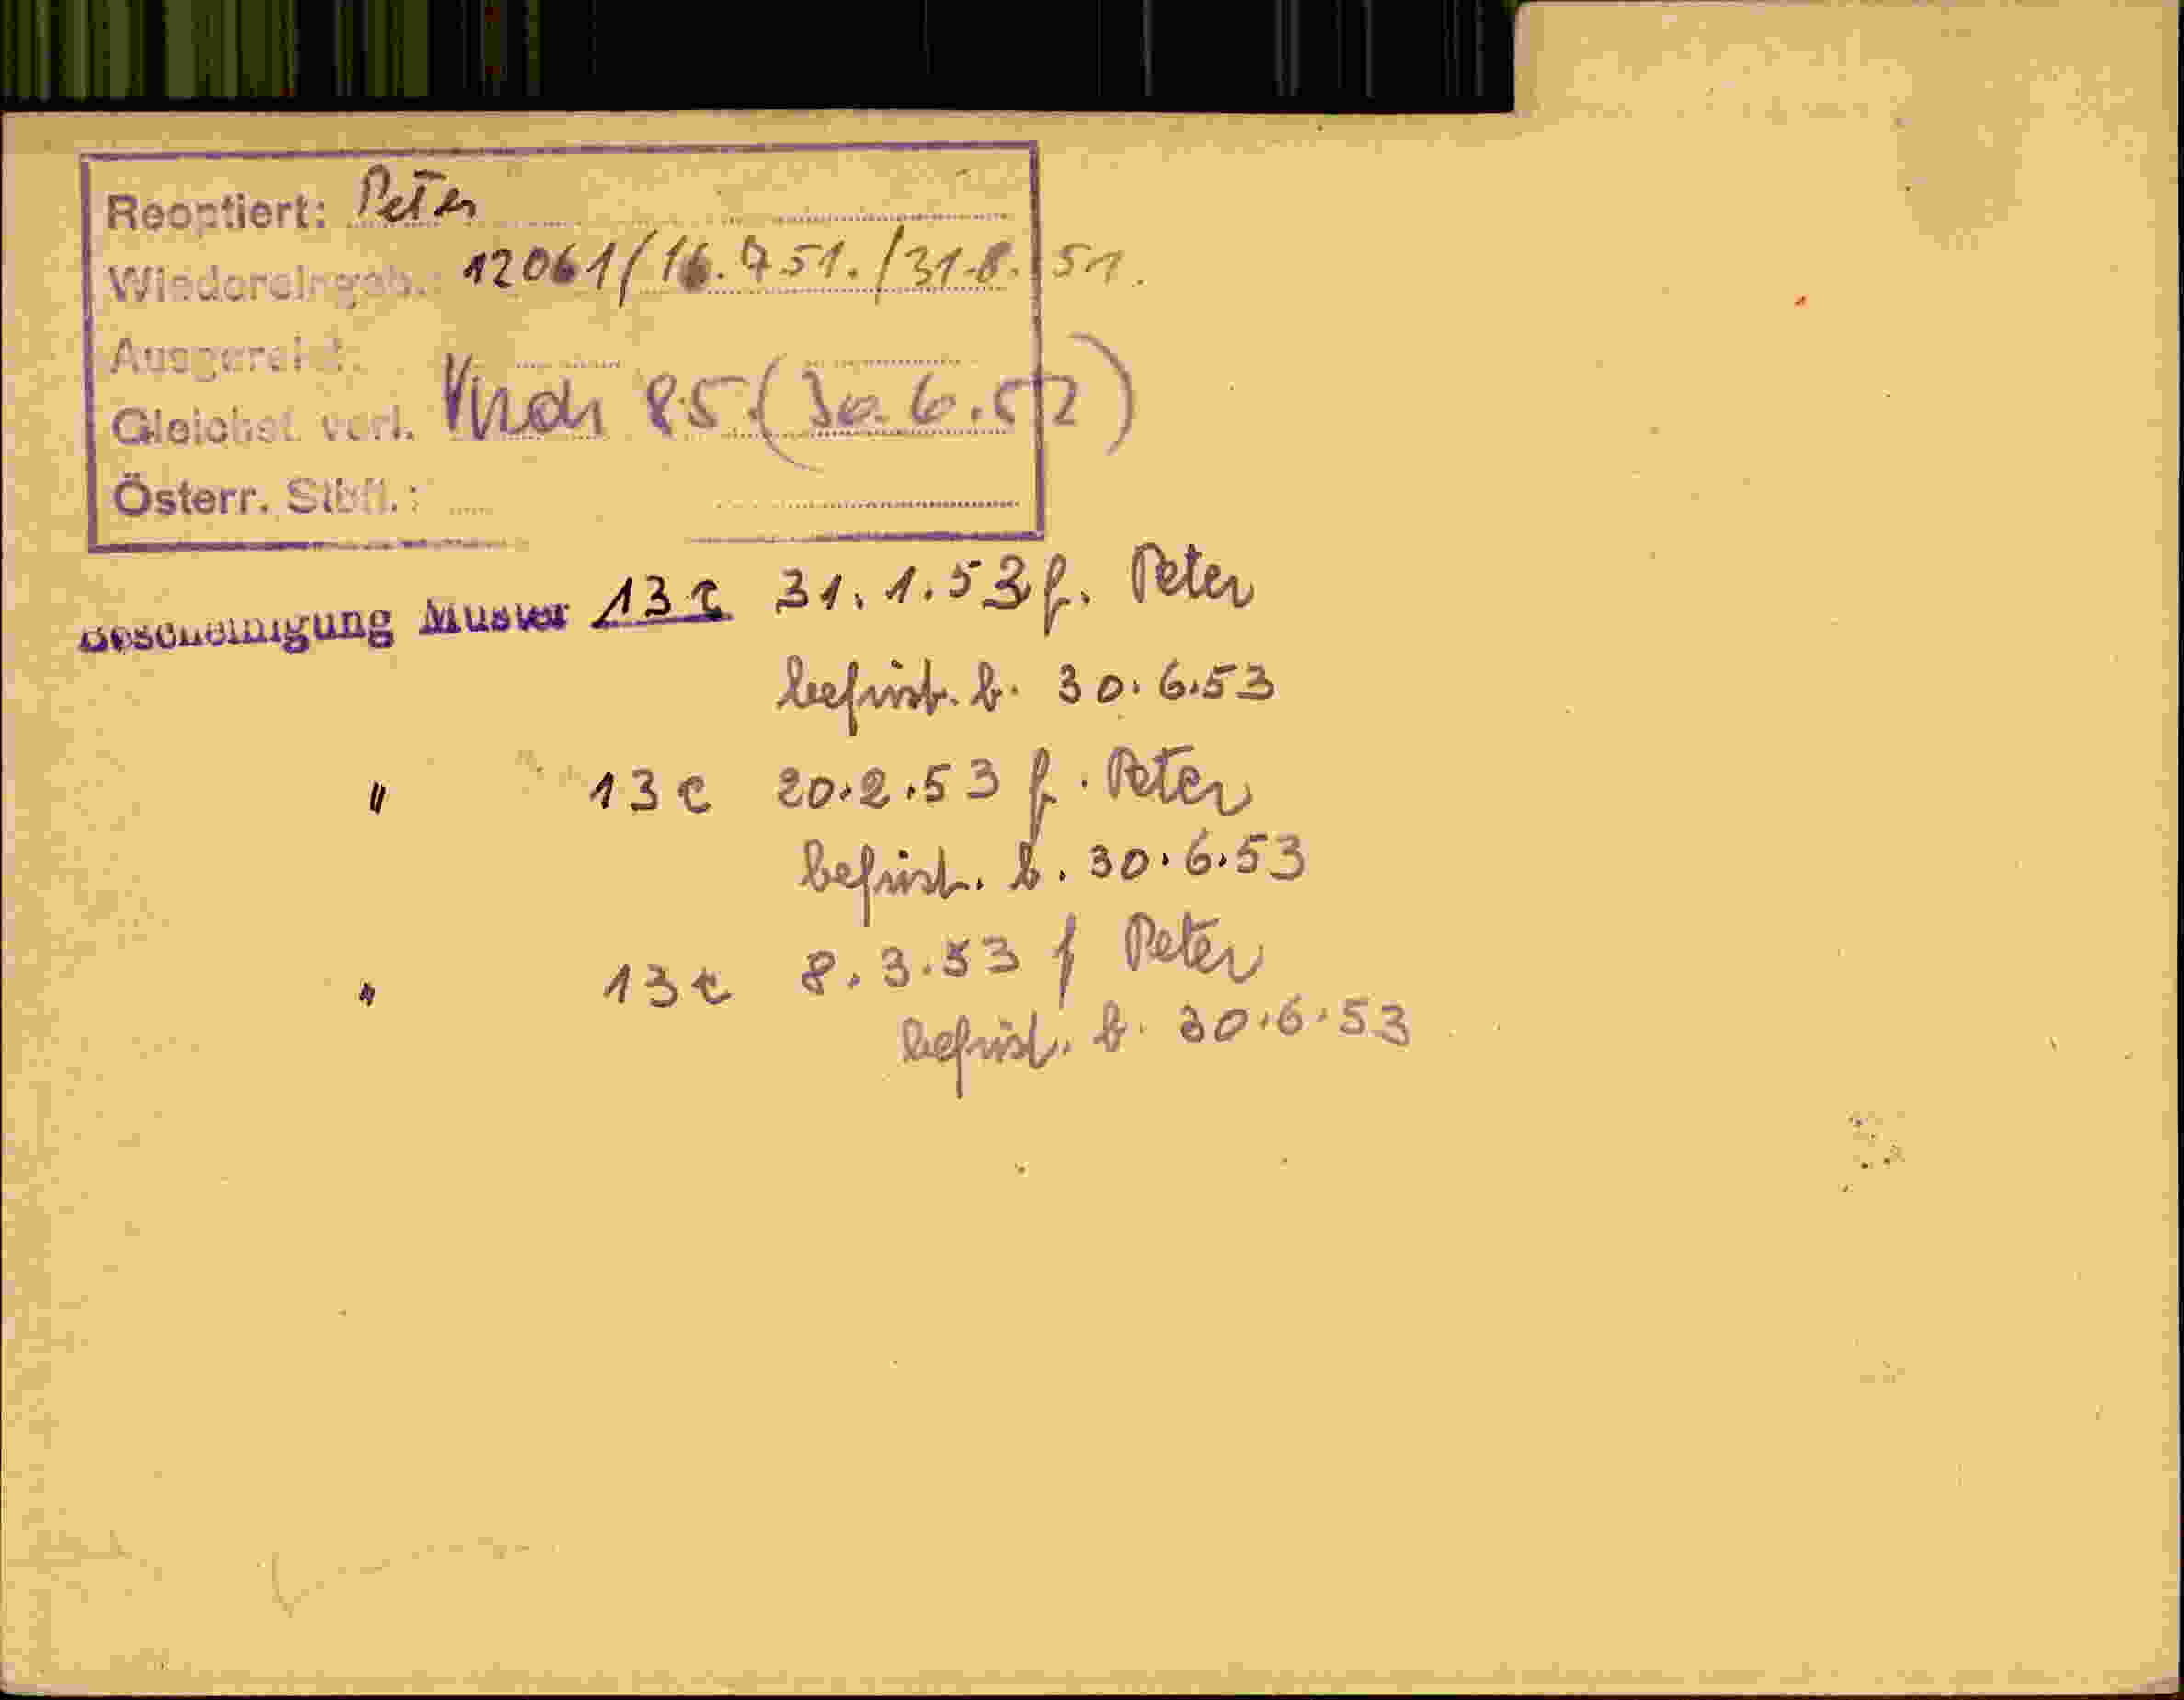 Reoptiert: Peter
Wiedereingeb.: 12061/16.751./31.8.51.
Ausgereist:
Gleichst. verl. 85 (30.6.52)
Österr. Stbft.:
Bescheinigung Muster 13c 31.1.53 f. Peter
befrist. b. 30.6.53
" 13c 20.2.53 f. Peter
befrist. b. 30.6.53
" 13c 8.3.53 f Peter
befrist. b. 30.6.53